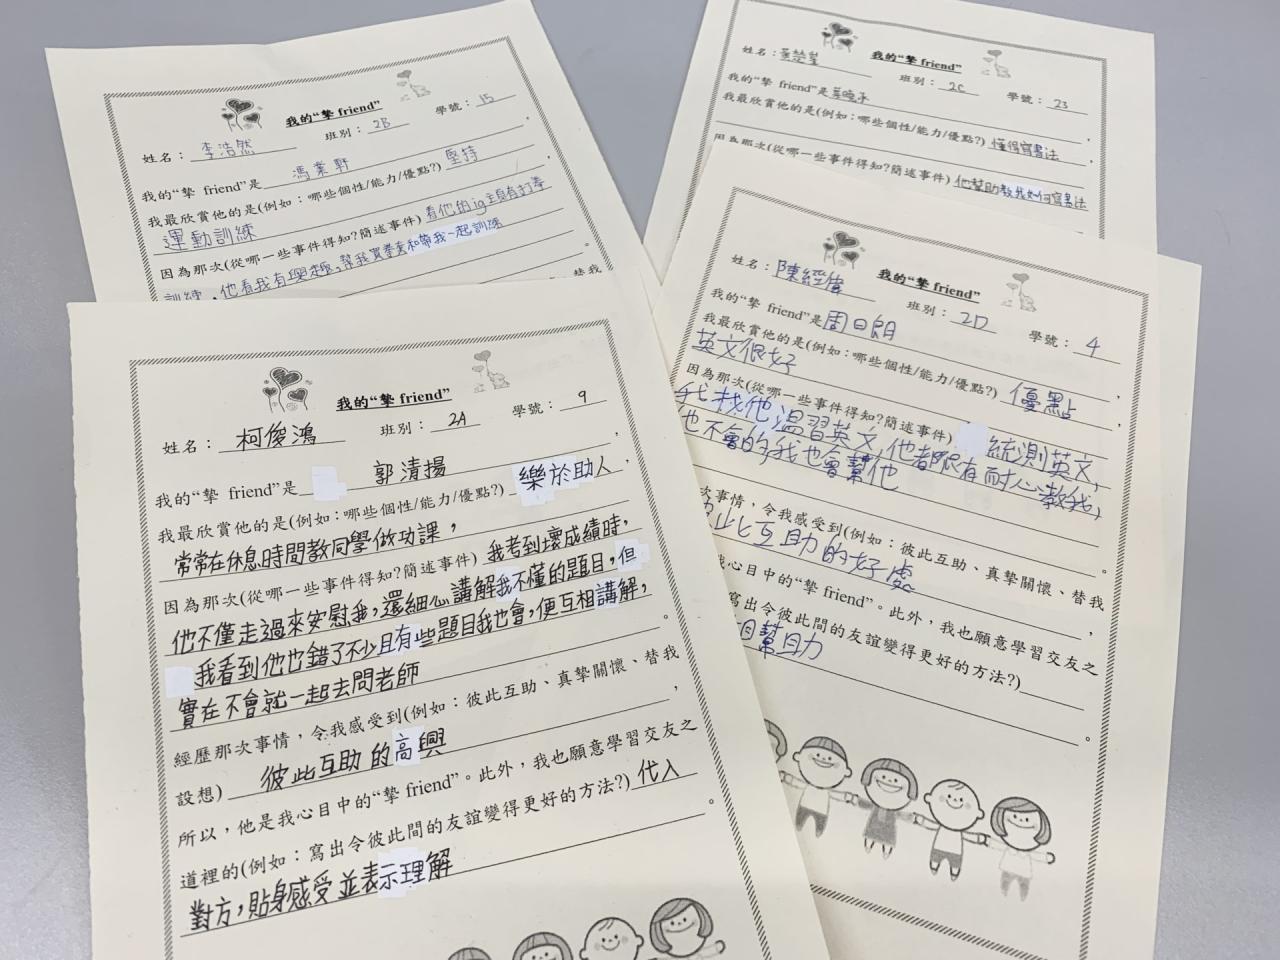 我的“摯 friend”
姓名：李浩然 班別：2B 學號：15
我的“摯 friend”是 馮業軒，
我最欣賞他的是(例如：哪些個性/能力/優點?) 堅持
運動訓練，
因為那次(從哪一些事件得知?簡述事件) 看他的ig主頁有打拳
訓練，他看我有興趣，幫我買拳套和帶我一起訓練
替我
我的“摯 friend”
姓名： 班別：2C 學號：23
我的“摯 friend”是，
我最欣賞他的是(例如：哪些個性/能力/優點?) 懂得寫書法，
因為那次(從哪一些事件得知?簡述事件) 他幫助教我如何寫書法
我的“摯 friend”
姓名：柯俊鴻 班別：2A 學號：9
我的“摯 friend”是 郭清揚，
我最欣賞他的是(例如：哪些個性/能力/優點?) 樂於助人，
常常在休息時間教同學做功課，
因為那次(從哪一些事件得知?簡述事件) 我考到壞成績時，
他不僅走過來安慰我，還細心講解我不懂的題目，但
我看到他也錯了不少且有些題目我也會，便互相講解，
實在不會就一起去問老師。
經歷那次事情，令我感受到(例如：彼此互助、真摯關懷、替我
設想) 彼此互助的高興，
所以，他是我心目中的“摯 friend”。此外，我也願意學習交友之
道裡的(例如：寫出令彼此間的友誼變得更好的方法?) 代入
對方，貼身感受並表示理解。
我的“摯 friend”
姓名：陳經偉 班別：2D 學號：4
我的“摯 friend”是周日朗，
我最欣賞他的是(例如：哪些個性/能力/優點?) 優點
英文很好，
因為那次(從哪一些事件得知?簡述事件) 統測英文，
我找他溫習英文，他都很有耐心教我，
他不會的，我也會幫他。
次事情，令我感受到(例如：彼此互助、真摯關懷、替我
彼此互助的好處，
我心目中的“摯 friend”。此外，我也願意學習交友之
寫出令彼此間的友誼變得更好的方法?)
相幫助。